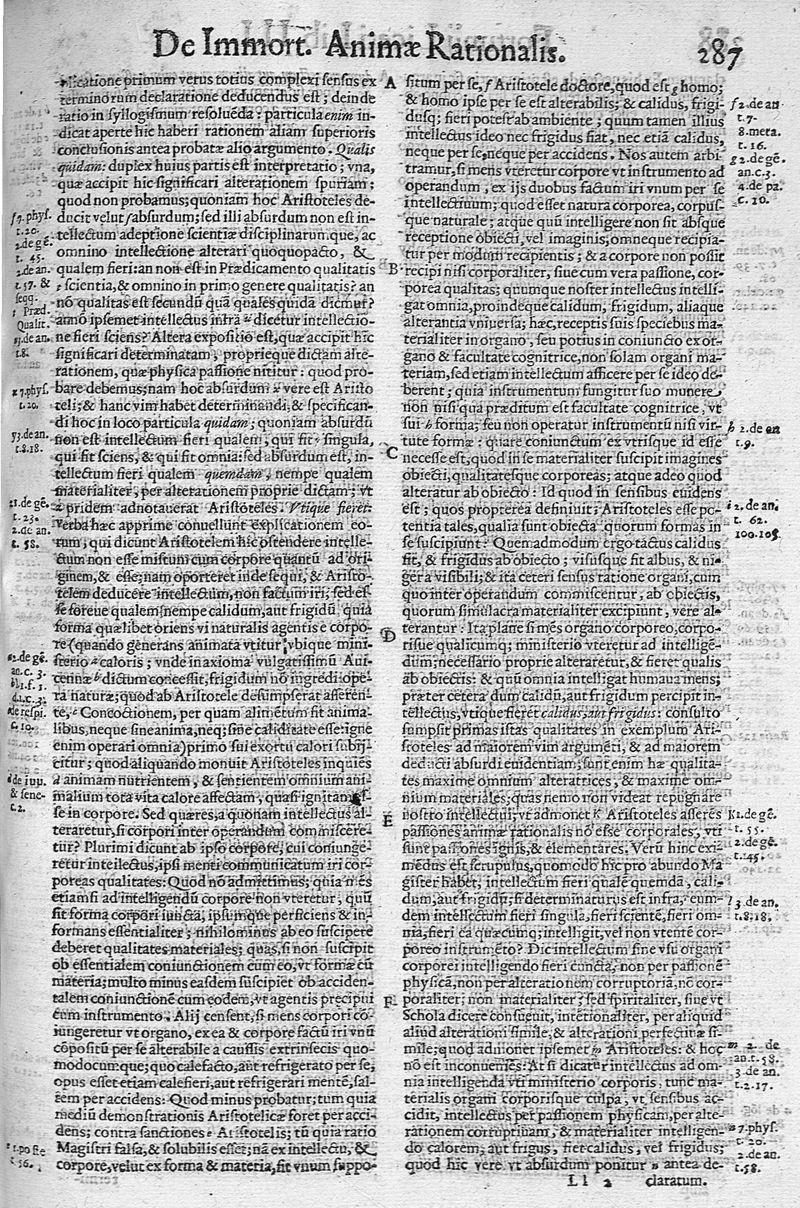 De Immort. Animæ Rationalis.
287
plicatione primum verus totius complexi sensus ex
terminorum declaratione deducendus est; deinde
ratio in syllogismum resoluēda: particula enim in-
dicat aperte hic haberi rationem aliam superioris
conclusionis antea probatæ alio argumento. Qualis
quidam: duplex huius partis est interpretatio; vna,
quæ accipit hic significari alterationem spuriam;
quod non probamus; quoniam hoc Aristoteles de-
ducit velut f absurdum; sed illi absurdum non est in-
tellectum adeptione scientiæ disciplinarumque, ac
omnino intellectione alterari quoquopacto, &
qualem fieri: an non est in Prædicamento qualitatis
scientia, & omnino in primo genere qualitatis? an
nō qualitas est secundū quā quales quidā dicimur?
annō ipsemet intellectus infra dicetur intellectio-
ne fieri sciens? Altera expositio est, quæ accipit hic
significari determinatam, proprieque dictam alte-
rationem, quæ physica passione nititur: quod pro-
bare debemus; nam hoc absurdum x vere est Aristo
teli; & hanc vim habet determinandi, & specifican-
di hoc in loco particula quidam; quoniam absurdū
non est intellectum fieri qualem, qui fit y singula,
qui fit sciens, & qui fit omnia: sed absurdum est, in-
tellectum fieri qualem quemdam, nempe qualem
materialiter, per alterationem proprie dictam; vt
z pridem adnotauerat Aristoteles. Vtique fieret.
Verba hæc apprime conuellunt explicationem eo-
rum, qui dicunt Aristotelem hic ostendere intelle-
ctum non esse mistum cum corpore quantū ad ori-
ginem, & esse; nam oporteret inde sequi, & Aristo-
telem deducere intellectum, non factum iri; sed es-
se foreue qualem; nempe calidum, aut frigidū, quia
forma quælibet oriens vi naturalis agentis e corpo-
re (quando generans animata vtitur vbique mini-
sterio caloris; vnde in axioma vulgatissimū Aui-
cennæ dictum concessit, frigidum nō ingredi ope-
ra naturæ; quod ab Aristotele desumpserat asseren-
te, Concoctionem, per quam alimētum fit anima-
libus, neque sine anima, neq; sine caliditate esse: igne
enim operari omnia) primo sui exortu calori subij-
citur; quod aliquando monuit Aristoteles inquiēs
animam nutrientem, & sentientem omnium ani-
malium tota vita calore affectam, quasi ignitam es-
se in corpore. Sed quæres, a quonam intellectus al-
teraretur, si corpori inter operandum commiscere-
tur? Plurimi dicunt ab ipso corpore, cui coniunge-
retur intellectus, ipsi menti communicatum iri cor-
poreas qualitates: Quod nō admittimus; quia mēs
etiamsi ad intelligendū corpore non vteretur, quū
sit forma corpori iuncta, ipsumque perficiens & in-
formans essentialiter; nihilominus ab eo suscipere
deberet qualitates materiales; quas, si non suscipit
ob essentialem coniunctionem cum eo, vt formæ cū
materia; multo minus easdem suscipiet ob acciden-
talem coniunctionē cum eodem, vt agentis præcipui
cum instrumento. Alij censent, si mens corpori cō-
iungeretur vt organo, ex ea & corpore factū iri vnū
cōpositū per se alterabile a caussis extrinsecis quo-
modocumque; quo calefacto, aut refrigerato per se,
opus esset etiam calefieri, aut refrigerari mentē, sal-
tem per accidens: Quod minus probatur; tum quia
mediū demonstrationis Aristotelicæ foret per acci-
dens; contra sanctiones Aristotelis; tū quia ratio
Magistri falsa, & solubilis esset; nā ex intellectu, &
corpore, velut ex forma & materia, fit vnum suppo-
f 7. phys.
t. 20.
2. de gē.
t. 45.
2. de an.
t. 57. &
seqq.
t Præd.
Qualit.
3. de an.
t. 8.
x 7. phys.
t. 20.
y 3. de an.
t. 8. 18.
z 1. de gē.
t. 23.
2. de an.
t. 58.
2. de gē.
an. c. 3.
de respi.
c. 10.
de iuu.
& sene-
t. 2.
1. poste
t. 56.
A
B
C
D
E
F
situm per se, f Aristotele doctore, quod est g homo;
& homo ipse per se est alterabilis; & calidus, frigi-
dusq; fieri potest ab ambiente; quum tamen illius
intellectus ideo nec frigidus fiat, nec etiā calidus,
neque per se, neque per accidens. Nos autem arbi
tramur, si mens vteretur corpore vt instrumento ad
operandum, ex ijs duobus factum iri vnum per se
intellectiuum; quod esset natura corporea, corpus-
que naturale; atque quū intelligere non sit absque
receptione obiecti, vel imaginis; omneque recipia-
tur per modum recipientis; & a corpore non possit
recipi nisi corporaliter, siue cum vera passione, cor-
porea qualitas; quumque noster intellectus intelli-
gat omnia, proindeque calidum, frigidum, aliaque
alterantia vniuersa; hæc, receptis suis speciebus ma-
terialiter in organo, seu potius in coniuncto ex or-
gano & facultate cognitrice, non solam organi ma-
teriam, sed etiam intellectum afficere per se ideo de-
berent; quia instrumentum fungitur suo munere
non nisi qua præditum est facultate cognitrice, vt
sui h forma; seu non operatur instrumentū nisi vir-
tute formæ: quare coniunctum ex vtrisque id esse
necesse est, quod in se materialiter suscipit imagines
obiecti, qualitatesque corporeas; atque adeo quod
alteratur ab obiecto: Id quod in sensibus euidens
est; quos propterea definiuit i Aristoteles esse po-
tentia tales, qualia sunt obiecta quorum formas in
se suscipiunt: Quen admodum ergo tactus calidus
fit, & frigidus ab obiecto; visusque fit albus, & ni-
ger a visibili; & ita ceteri sensus ratione organi, cum
quo inter operandum commiscentur, ab obiectis,
quorum simulacra materialiter excipiunt, vere al-
terantur: Ita plane si mēs organo corporeo, corpo-
risue qualicumq; ministerio vteretur ad intelligē-
dum; necessario proprie alteraretur, & fieret qualis
ab obiectis: & quū omnia intelligat humana mens;
præter cetera dum calidū, aut frigidum percipit in-
tellectus, vtique fieret calidus, aut frigidus: consulto
sumpsit primas istas qualitates in exemplum Ari-
stoteles ad maiorem vim argumēti, & ad maiorem
deducti absurdi euidentiam; sunt enim hæ qualita-
tes maxime omnium alteratrices, & maxime om-
nium materiales; quas nemo non videat repugnare
nostro intellectui; vt admonet k Aristoteles asserēs
passiones animæ rationalis nō esse corporales, vti
sunt passiones ignis, & elementares. Verū hinc exi-
mēdus est scrupulus, quomodo hic pro absurdo Ma
gister habet, intellectum fieri qualē quemdā, cali-
dum, aut frigidū; si determinaturus est infra, l eum-
dem intellectum fieri singula, fieri scientē, fieri om-
nia; fieri ea quæcumq; intelligit, vel non vtentē cor-
poreo instrumēto? Dic intellectum sine vsu organi
corporei intelligendo fieri cuncta; non per passionē
physicā, non per alterationem corruptoriā, nō cor-
poraliter; non materialiter? sed spiritaliter, siue vt
Schola dicere consueuit, intētionaliter, per aliquid
aliud alterationi simile, & alterationi perfectiuæ si-
mile; quod admonet ipsemet m Aristoteles: & hoc
nō est inconueniēs: At si dicatur intellectus ad om-
nia intelligenda vti ministerio corporis, tunc ma-
terialis organi corporisque culpa, vt sensibus ac-
cidit, intellectus per passionem physicam, per alte-
rationem corruptiuam, & materialiter intelligen-
do calorem, aut frigus, fiet calidus, vel frigidus;
quod hic vere vt absurdum ponitur n antea de-
f 2. de an
t. 7.
8. meta.
t. 16.
g 2. de gē.
an. c. 3.
4. de pa.
c. 10.
h 2. de an
t. 9.
i 2. de an.
t. 62.
100. 105.
k 1. de gē.
t. 55.
2. de gē.
t. 45.
l 3. de an.
t. 8. 18.
m 2. de
an. t. 58.
3. de an.
t. 2. 17.
n 7. phys.
t. 20.
2. de an.
t. 58.
Ll 2
claratum.